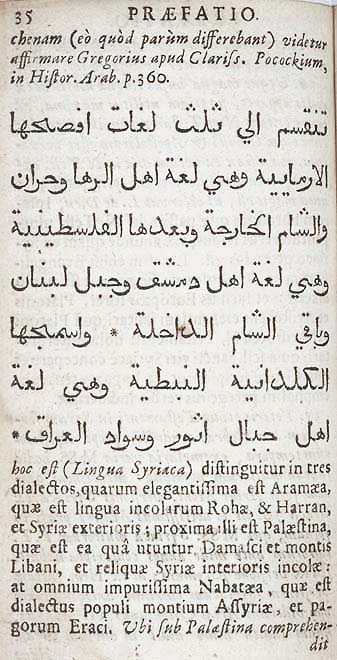 35 PRÆFATIO.
chenam (eò quòd parùm differebant) videtur
affirmare Gregorius apud Clariss. Pocockium,
in Histor. Arab. p. 360.
تنقسم الي ثلث لغات افصحها
الارماىية وهي لغة اهل الرها وحران
والشام الخارجة وبعدها الفلسطينية
وهي لغة اهل دمشق وجبل لبنان
وباقي الشام الداخلة * واسمجها
الكلدانية النبطية وهي لغة
اهل جبال اثور وسواد العراق *
hoc est (Lingua Syriaca) distinguitur in tres
dialectos, quarum elegantissima est Aramæa,
quæ est lingua incolarum Rohæ, & Harran,
et Syriæ exterioris; proxima illi est Palæstina,
quæ est ea quâ utuntur Damasci et montis
Libani, et reliquæ Syriæ interioris incolæ:
at omnium impurissima Nabatæa, quæ est
dialectus populi montium Assyriæ, et pa-
gorum Eraci. Ubi sub Palæstina comprehen-
dit